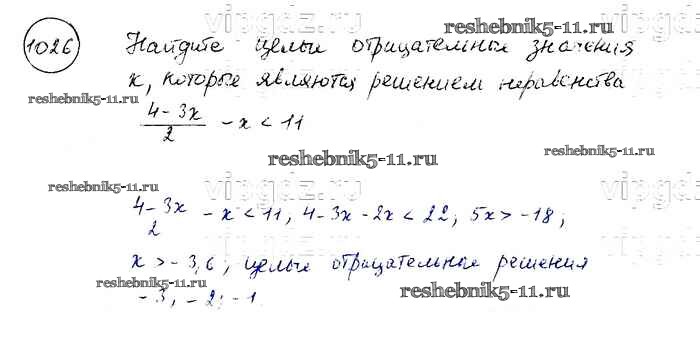 1026 Найдите целые отрицательные значения
vipgdz.ru
reshebnik5-11.ru
x, которые являются решением неравенства
reshebnik5-11.ru
(4-3x)/2 - x < 11
reshebnik5-11.ru
reshebnik5-11.ru
reshebnik5-11.ru
vipgdz.ru
(4-3x)/2 - x < 11, 4-3x-2x < 22; 5x > -18;
x > -3,6; целые отрицательные решения
-3, -2; -1
reshebnik5-11.ru